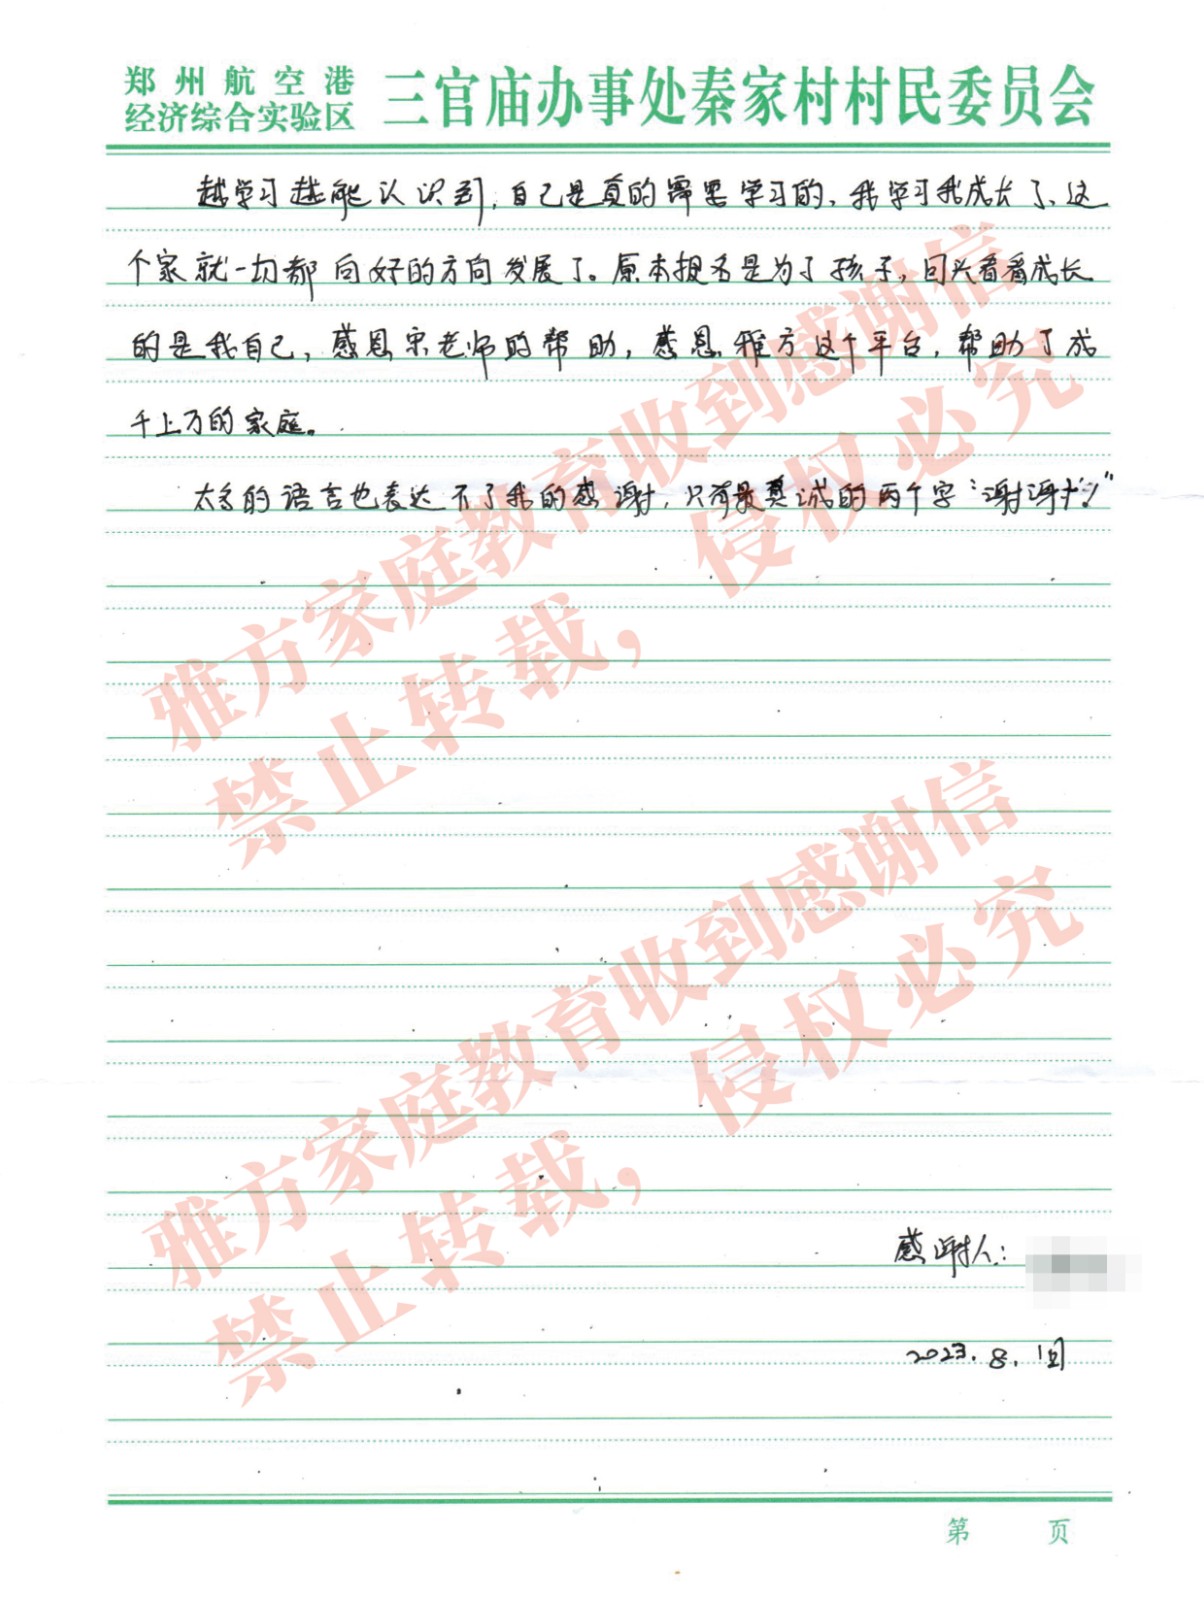 郑州航空港
经济综合实验区
三官庙办事处秦家村村民委员会
越学习越能认识到,自己是真的需要学习的,我学习我成长了,这
个家就一切都向好的方向发展了。原本报名是为了孩子,回头看看成长
的是我自己,感恩宋老师的帮助,感恩雅方这个平台,帮助了成
千上万的家庭。
太多的语言也表达不了我的感谢,只有最真诚的两个字:“谢谢!”
雅方家庭教育收到感谢信
禁止转载,侵权必究
雅方家庭教育收到感谢信
禁止转载,侵权必究
感谢人:
2023.8.1日
第 页